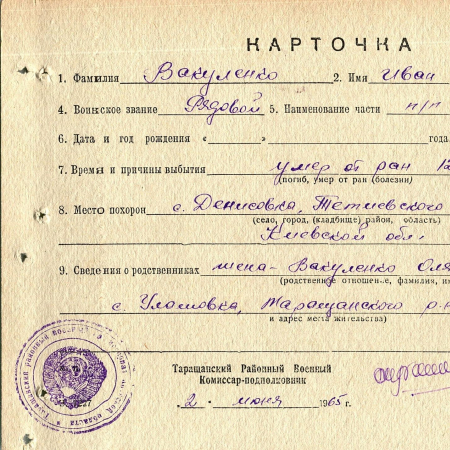 КАРТОЧКА
1. Фамилия Вакуленко 2. Имя Иван
4. Воинское звание Рядовой 5. Наименование части п/п
6. Дата и год рождения « » года
7. Время и причины выбытия умер от ран 12
(погиб, умер от ран (болезни)
8. Место похорон с. Денисовка, Тетиевского
(село, город, (кладбище) район, область)
Киевской обл.
9. Сведения о родственниках жена - Вакуленко Оля
(родственное отношение, фамилия, им
с. Улашовка, Таращанского р-н
и адрес места жительства)
Таращанский Районный Военный
Комиссар-подполковник
2. июня 1965 г.